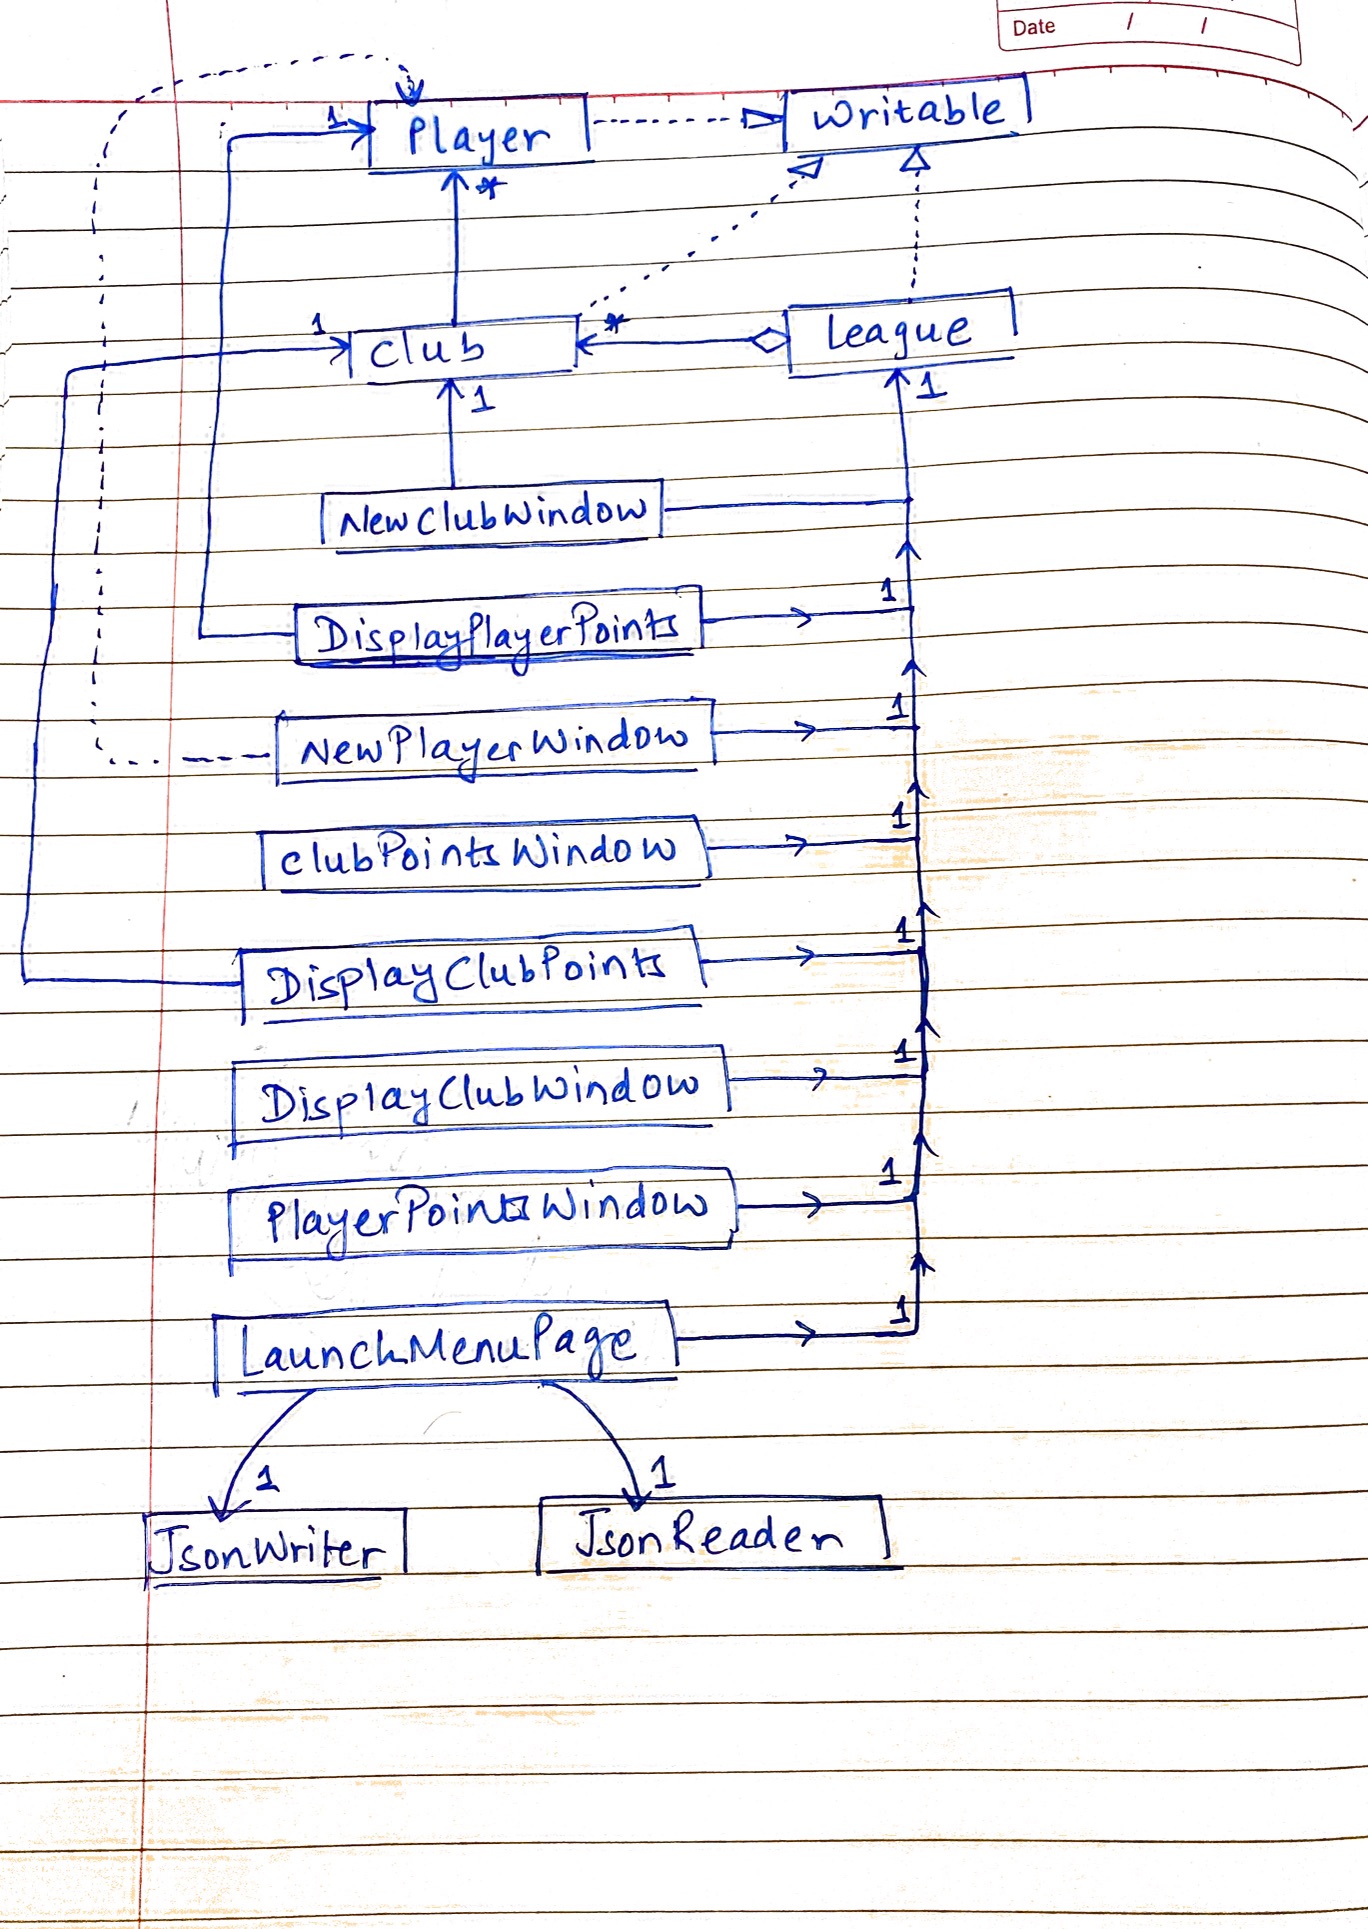 Date / /
1
Player
Writable
*
1
Club
*
League
1
1
NewClubWindow
1
DisplayPlayerPoints
1
NewPlayerWindow
1
ClubPointsWindow
1
DisplayClubPoints
1
DisplayClubWindow
1
PlayerPointsWindow
1
LaunchMenuPage
1
1
JsonWriter
JsonReader